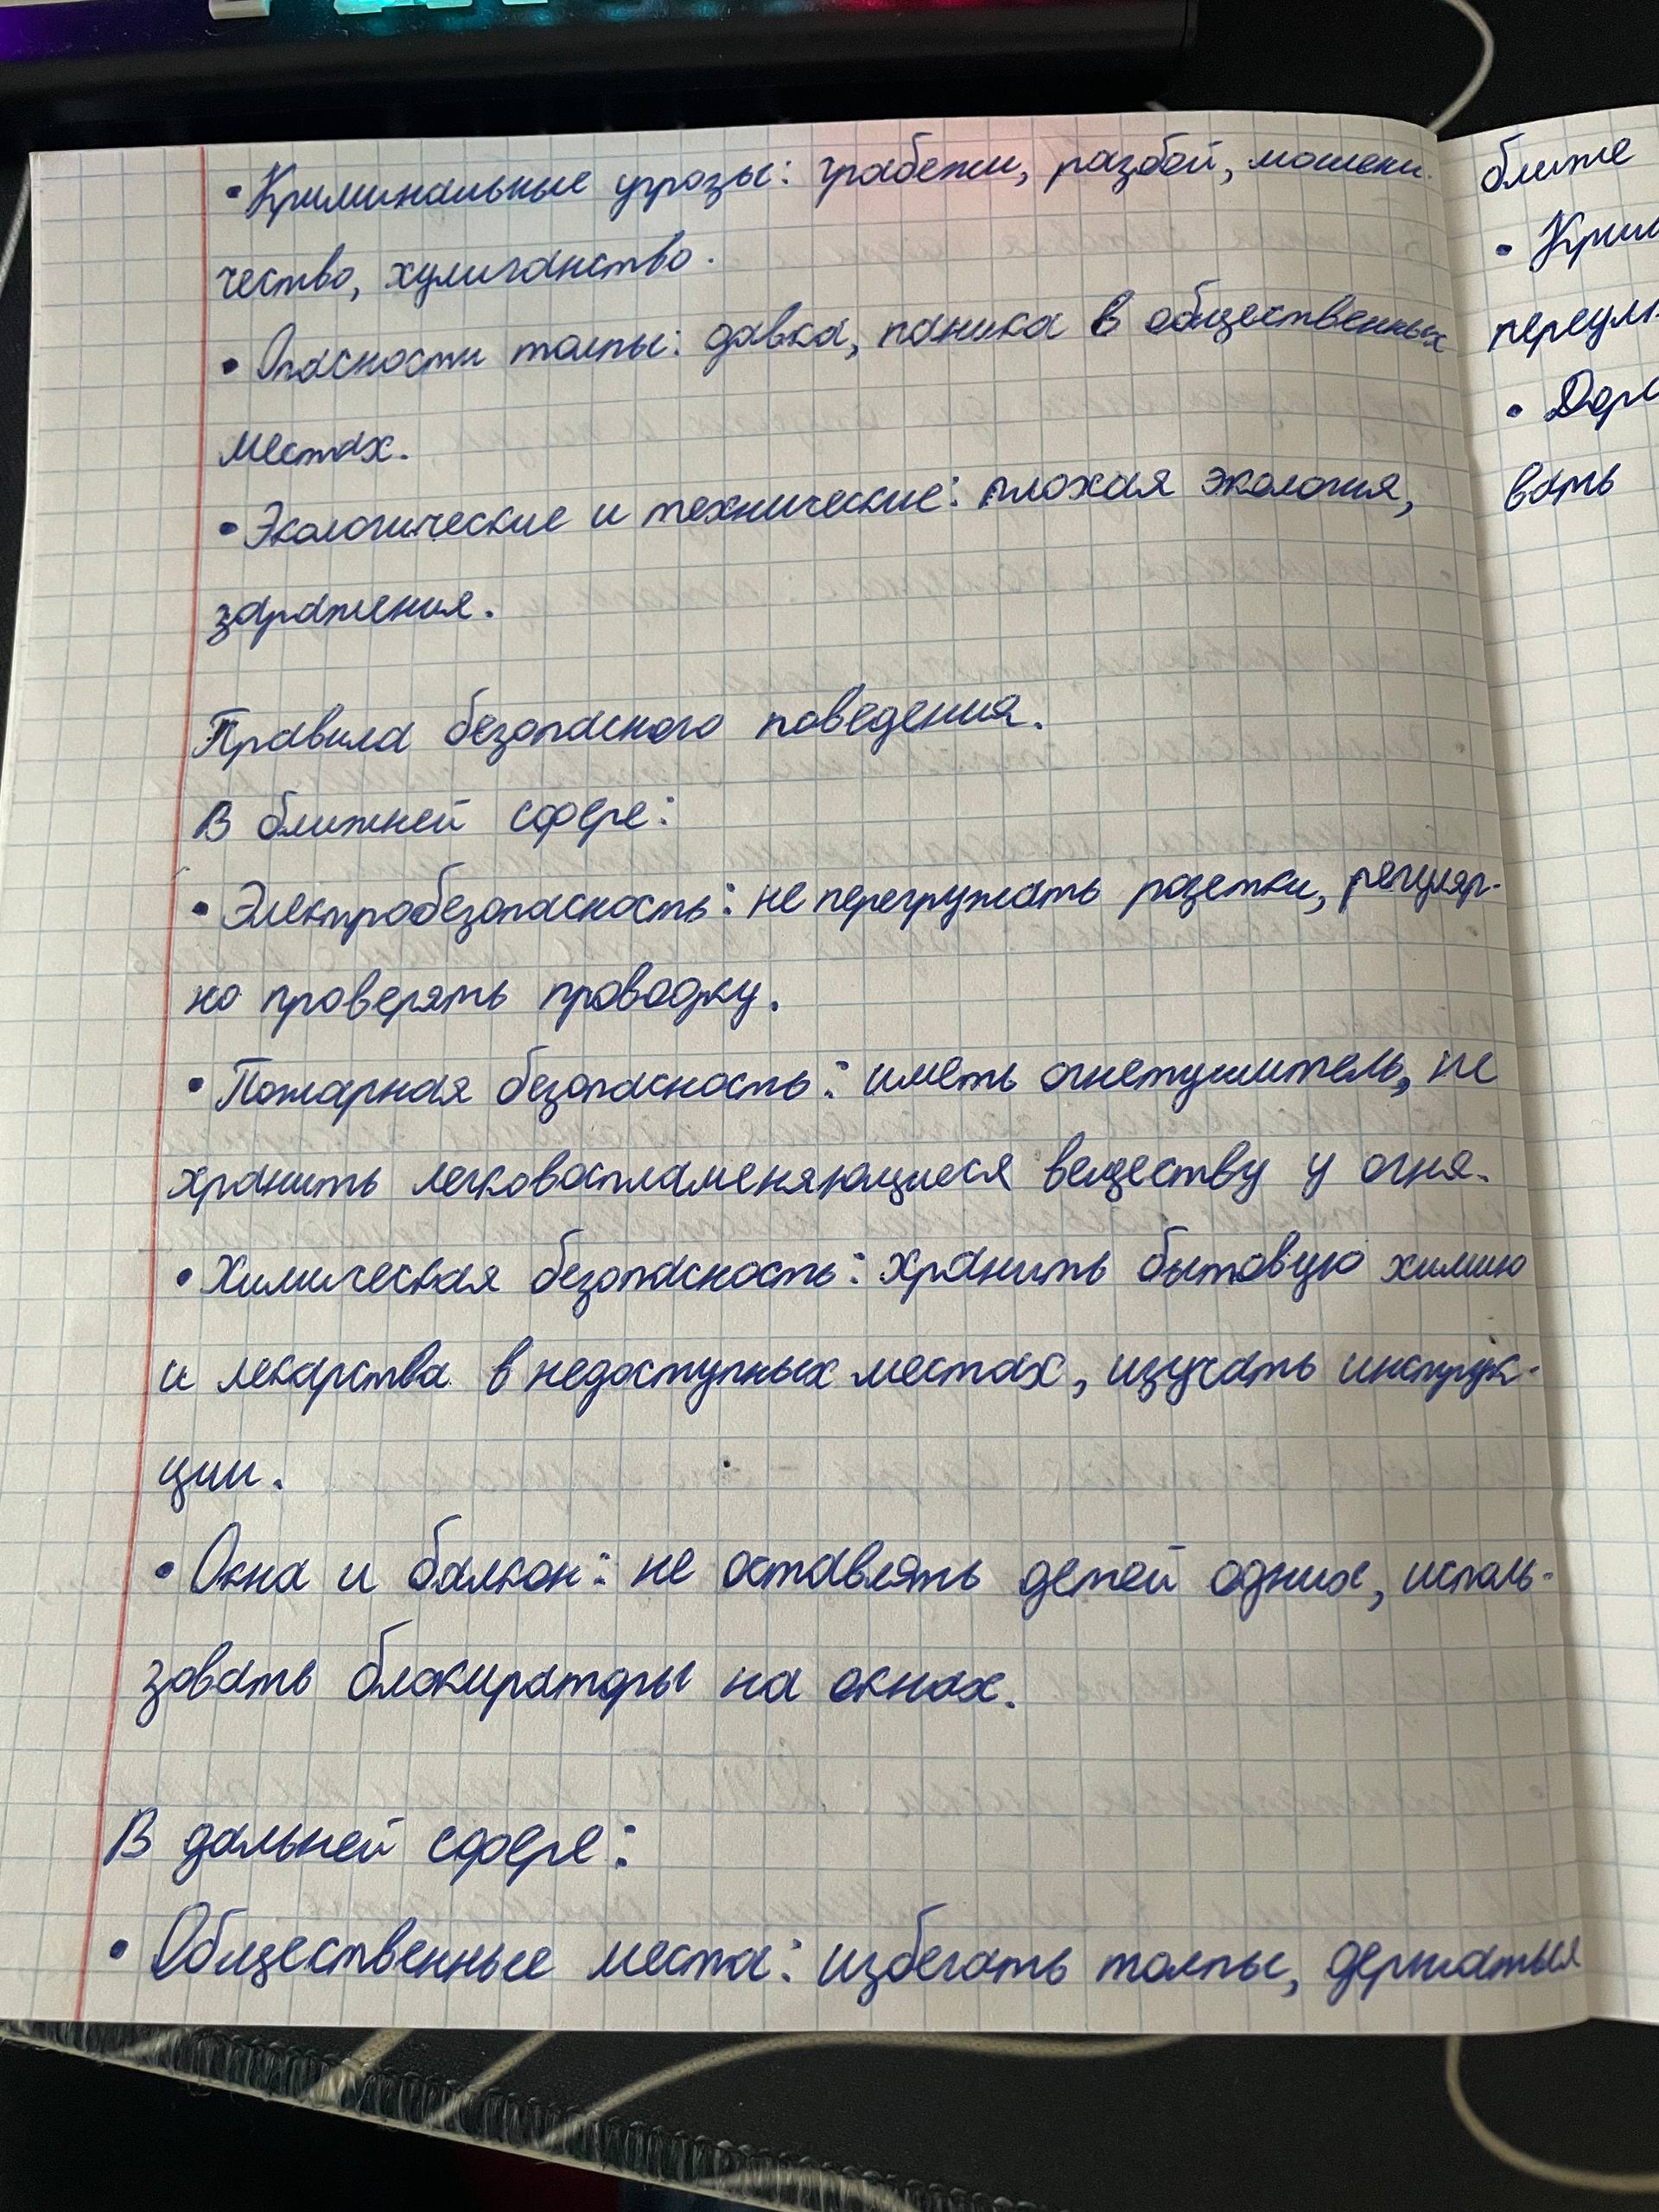 • Криминальные угрозы: грабежи, разбой, мошенни-
чество, хулиганство.
• Опасности толпы: давка, паника в общественных
местах.
• Экологические и технические: плохая экология,
заражения.
Правила безопасного поведения.
В ближней сфере:
• Электробезопасность: не перегружать розетки, регуляр-
но проверять проводку.
• Пожарная безопасность: иметь огнетушитель, не
хранить легковоспламеняющиеся веществу у огня.
• Химическая безопасность: хранить бытовую химию
и лекарства в недоступных местах, изучать инструк-
ции.
• Окна и балкон: не оставлять детей одних, исполь-
зовать блокираторы на окнах.
В дальней сфере:
• Общественные места: избегать толпы, держаться
ближе
• Крим
переул
• Доро
вать